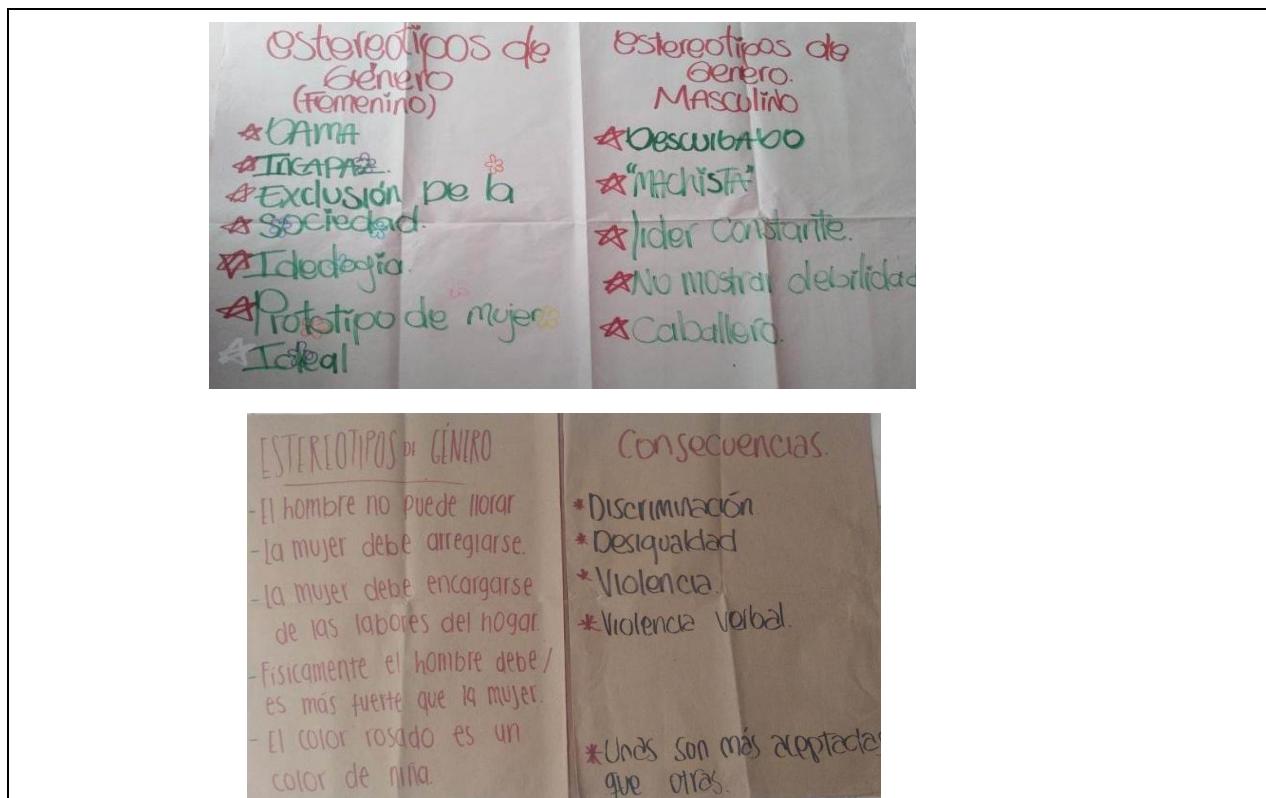 estereotipos de
Género
(Femenino)
☆ DAMA
☆ INCAPAZ.
☆ Exclusión De la
☆ sociedad.
☆ Ideología.
☆ Prototipo de mujer
☆ Ideal
estereotipos de
Genero.
MAsculiNo
☆ DescuidADO
☆ "MAchisTA"
☆ lider constante.
☆ No mostrar debilidad
☆ Caballero.
ESTEREOTIPOS DE GÉNERO
- El hombre no puede llorar
- La mujer debe arreglarse.
- La mujer debe encargarse
de las labores del hogar.
- Físicamente el hombre debe /
es más fuerte que la mujer.
- El color rosado es un
color de niña.
Consecuencias.
* Discriminación
* Desigualdad
* Violencia.
* Violencia verbal.
* Unas son más aceptadas
que otras.